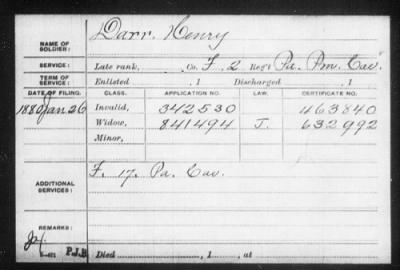 Darr. Henry
NAME OF SOLDIER:
SERVICE: Late rank, Co. F. 2 Reg't Pa. Pro. Cav.
TERM OF SERVICE: Enlisted , 1 Discharged , 1
DATE OF FILING. CLASS. APPLICATION NO. LAW. CERTIFICATE NO.
1880 Jan 26 Invalid, 342530 463840
Widow, 841494 J. 632992
Minor,
ADDITIONAL SERVICES: F. 17. Pa. Cav.
REMARKS:
P.J.B Died , 1 , at